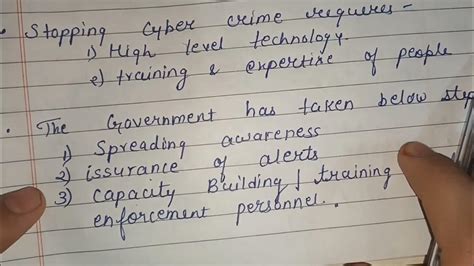 • Stopping Cyber crime requires -
1) High level technology.
2) training & expertise of people
• The Government has taken below step
1) Spreading awareness
2) issurance of alerts
3) Capacity Building / training
enforcement personnel.